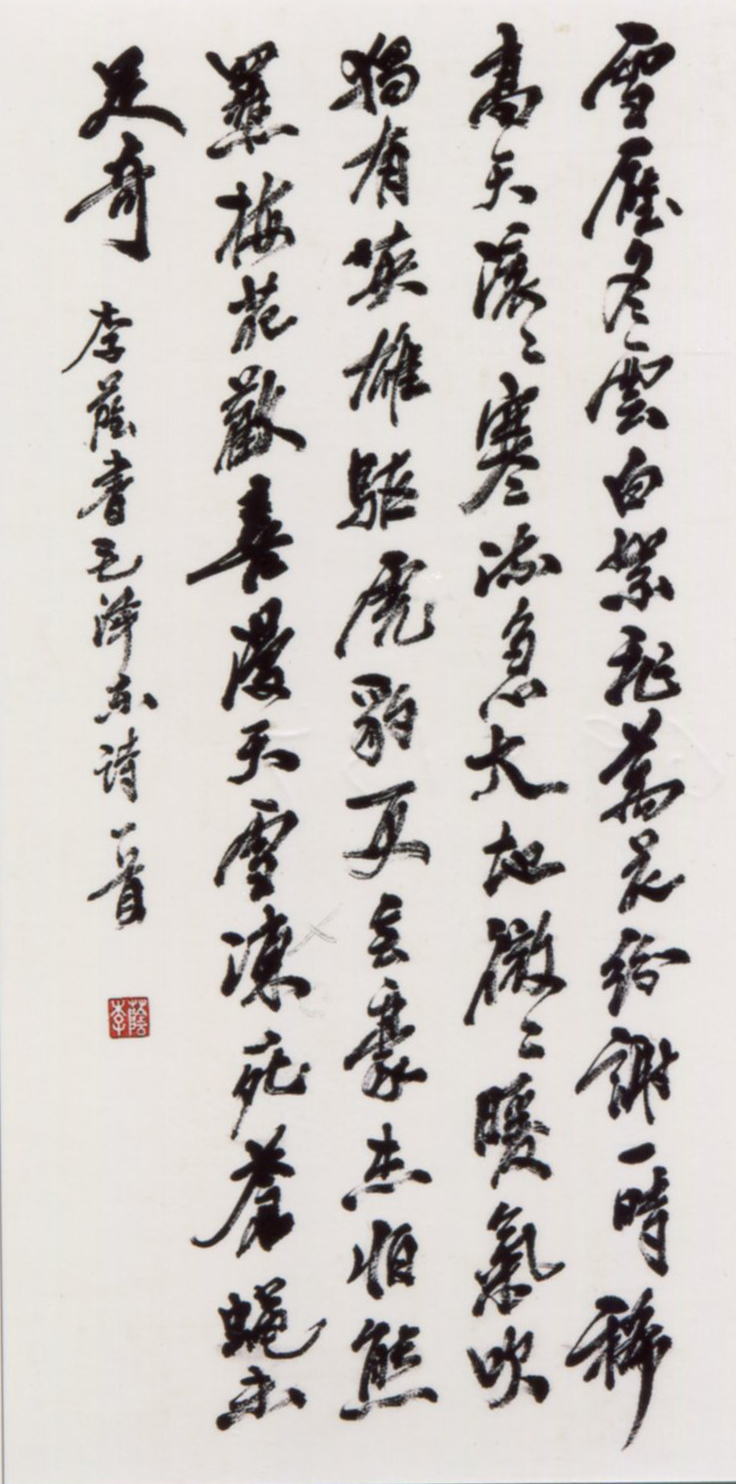 雪壓冬雲白絮飛萬花紛謝一時稀
高天滾〻寒流急大地微〻暖氣吹
獨有英雄驅虎豹更无豪杰怕熊
羆梅花歡喜漫天雪凍死蒼蠅未
足奇 李蔭書毛泽东诗一首
李蔭